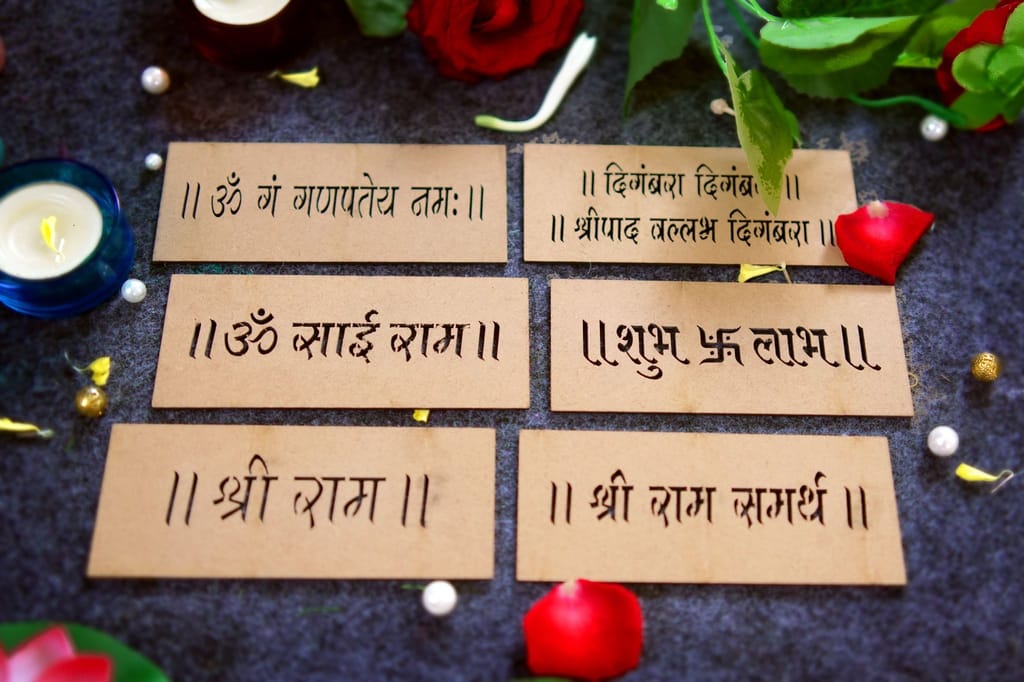 ॥ ॐ गं गणपतेय नमः॥
॥ दिगंबरा दिगंबरा ॥
॥ श्रीपाद वल्लभ दिगंबरा ॥
॥ ॐ साई राम ॥
॥ शुभ 卐 लाभ ॥
॥ श्री राम ॥
॥ श्री राम समर्थ ॥